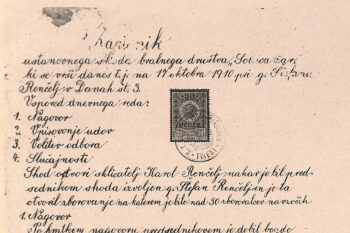 Zapisnik
ustanovnega shoda bralnega društva
ki se vrši danes t.j. na 17 oktobra 1910 pri g.
Renčelj v Danah št. 3.
Vspored dnevnega reda:
1. Nagovor
2. Vpisovanje udov
3. Volitev odbora
4. Slučajnosti
Shod otvori sklicatelj Karol Renčelj nakar je bil pred-
sednikom shoda izvoljen g. Štefan Renčelj in je ta
otvoril zborovanje na katerem je bilo nad 30 zborovalcev navzočih
1. Nagovor
Po kratkem nagovoru predsednikovem je dobil besedo